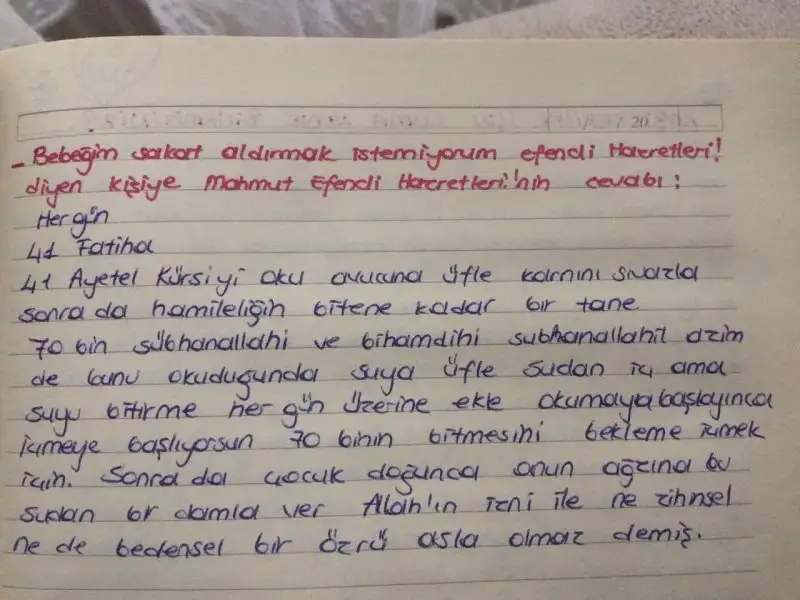 - Bebeğim sakat aldırmak istemiyorum efendi Hazretleri!
diyen kişiye Mahmut Efendi Hazretleri'nin cevabı:
Her gün
41 Fatiha
41 Ayetel Kürsiyi oku avucuna üfle karnını sıvazla
sonra da hamileliğin bitene kadar bir tane
70 bin sübhanallahi ve bihamdihi subhanallahil azim
de bunu okuduğunda suya üfle sudan iç ama
suyu bitirme her gün üzerine ekle okumaya başlayınca
içmeye başlıyorsun 70 binin bitmesini bekleme içmek
için. Sonra da çocuk doğunca onun ağzına bu
sudan bir damla ver Allah'ın izni ile ne zihinsel
ne de bedensel bir özrü asla olmaz demiş.